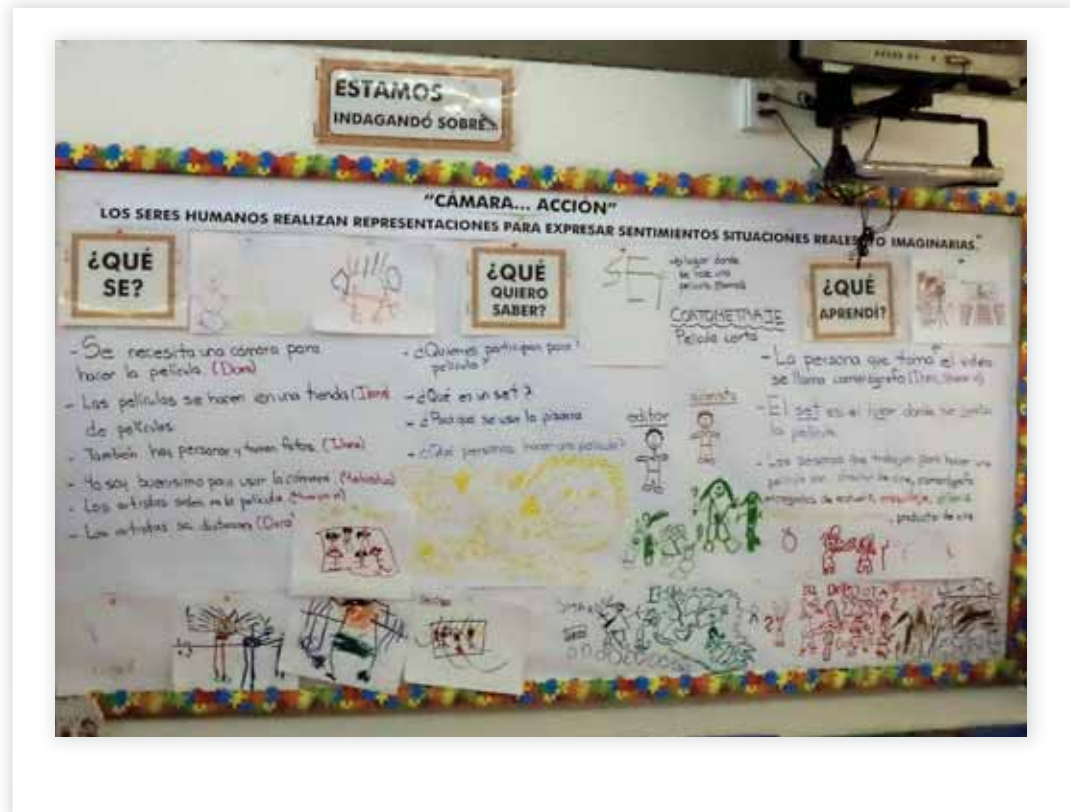 ESTAMOS
INDAGANDO SOBRE...
"CÁMARA... ACCIÓN"
LOS SERES HUMANOS REALIZAN REPRESENTACIONES PARA EXPRESAR SENTIMIENTOS SITUACIONES REALES Y/O IMAGINARIAS."
¿QUÉ
SE?
- Se necesita una cámara para
hacer la película (Dara)
- Las películas se hacen en una tienda
de películas
- También hay personas y toman fotos
- Yo soy buenísimo para usar la cámara
- Los artistas salen en la película
- Los artistas se disfrazan (Dara)
¿QUÉ
QUIERO
SABER?
- ¿Quienes participan para
película?
- ¿Qué es un set?
- ¿Para que se usa la pizarra
- ¿Qué personas hacen una película?
SET
lugar donde
se hace una
película
CORTOMETRAJE
Película corta
editor
¿QUÉ
APRENDÍ?
- La persona que toma el video
se llama camarógrafo
- El set es el lugar donde se
la película
- Las personas que trabajan para hacer una
película son director de cine, camarógrafo
encargados de vestuario, maquillaje,
productor de cine